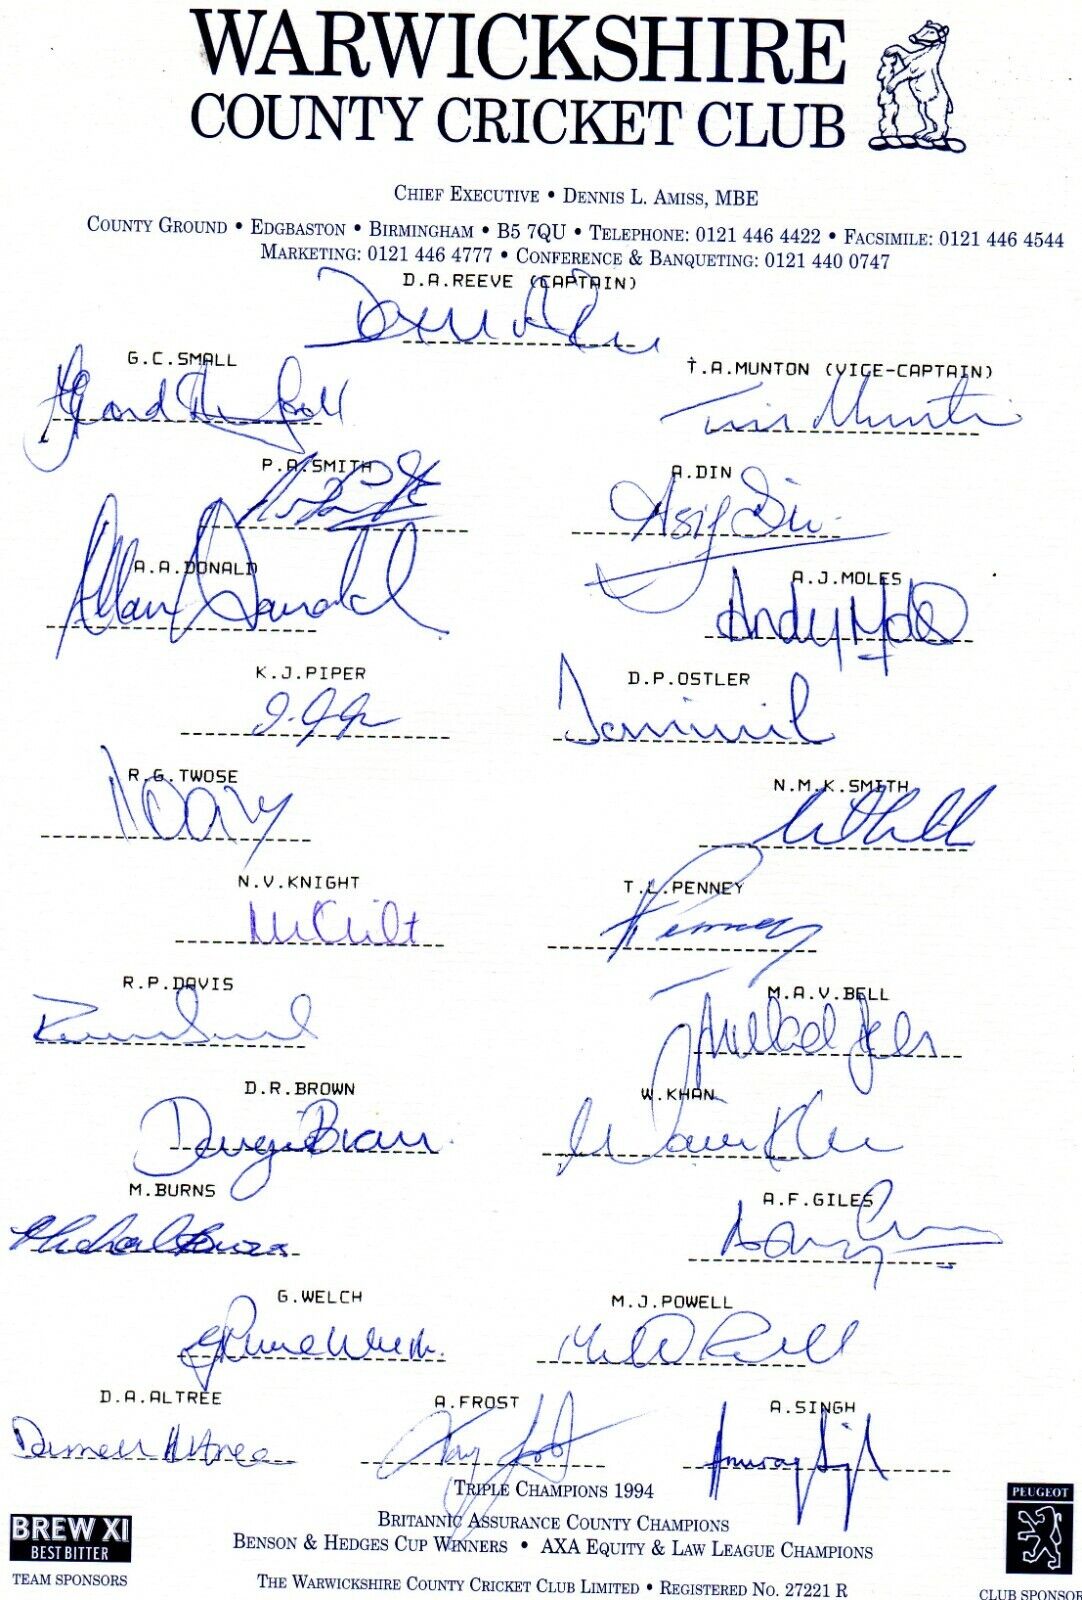 WARWICKSHIRE
COUNTY CRICKET CLUB
CHIEF EXECUTIVE • DENNIS L. AMISS, MBE
COUNTY GROUND • EDGBASTON • BIRMINGHAM • B5 7QU • TELEPHONE: 0121 446 4422 • FACSIMILE: 0121 446 4544
MARKETING: 0121 446 4777 • CONFERENCE & BANQUETING: 0121 440 0747
D.A.REEVE (CAPTAIN)
G.C.SMALL
T.A.MUNTON (VICE-CAPTAIN)
Tim Munton
P.A.SMITH
A.DIN
Asif Din
A.A.DONALD
Allan Donald
A.J.MOLES
Andy Moles
K.J.PIPER
D.P.OSTLER
R.G.TWOSE
N.M.K.SMITH
N.V.KNIGHT
T.L.PENNEY
Penney
R.P.DAVIS
M.A.V.BELL
D.R.BROWN
Dougie Brown
W.KHAN
Wasim Khan
M.BURNS
Michael Burns
A.F.GILES
G.WELCH
Graeme Welch
M.J.POWELL
D.A.ALTREE
Darren Altree
A.FROST
Tony Frost
A.SINGH
Anurag Singh
TRIPLE CHAMPIONS 1994
BRITANNIC ASSURANCE COUNTY CHAMPIONS
BENSON & HEDGES CUP WINNERS • AXA EQUITY & LAW LEAGUE CHAMPIONS
BREW XI
BEST BITTER
TEAM SPONSORS
PEUGEOT
CLUB SPONSOR
THE WARWICKSHIRE COUNTY CRICKET CLUB LIMITED • REGISTERED NO. 27221 R